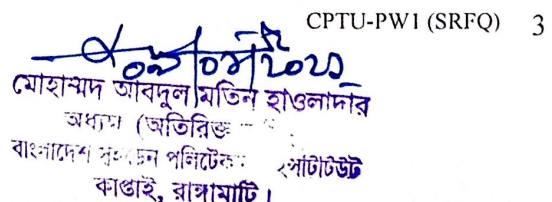 CPTU-PW1 (SRFQ) 3
মোহাম্মদ আবদুল মতিন হাওলাদার
অধ্যক্ষ (অতিরিক্ত
বাংলাদেশ সুইডেন পলিটেক
কাপ্তাই, রাঙ্গামাটি।